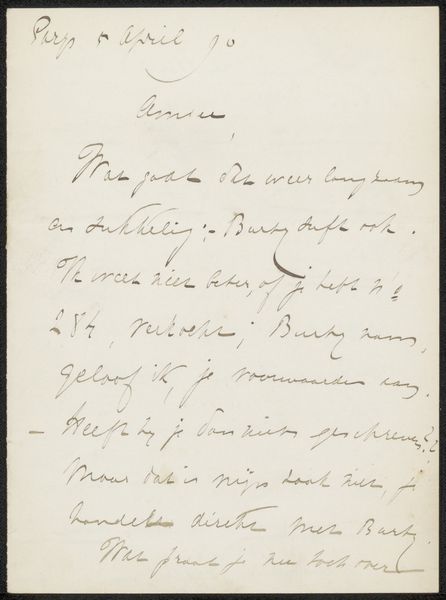 Parijs 5 April 90
Amice,
Wat gaat dit weer langzaam
en sukkelig; - Burty suft ook.
Ik weet niet beter, of je hebt No
284, verkocht; Burty nam,
geloof ik, je voorwaarden aan.
- Heeft hij je dan niet geschreven??
Maar dat is mijn zaak niet, je
handelt direkt met Burty.
Wat praat je nu toch over